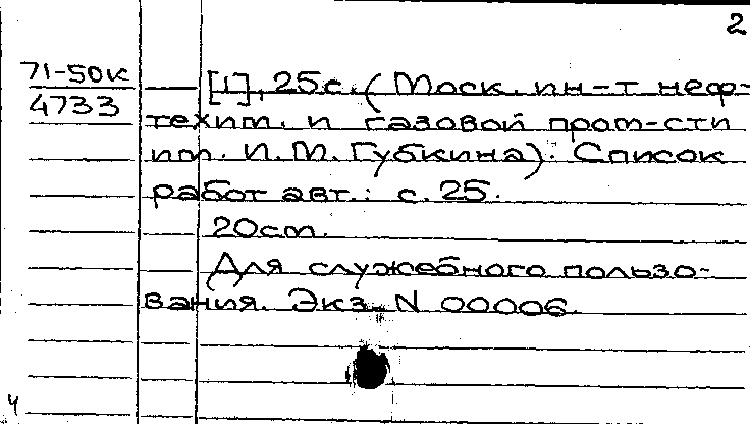 2
71-50к
4733
[1], 25с. (Моск. ин-т неф-
техим. и газовой пром-сти
им. И.М. Губкина). Список
работ авт.: с. 25.
20см.
Для служебного пользо-
вания. Экз. N 00006.
4